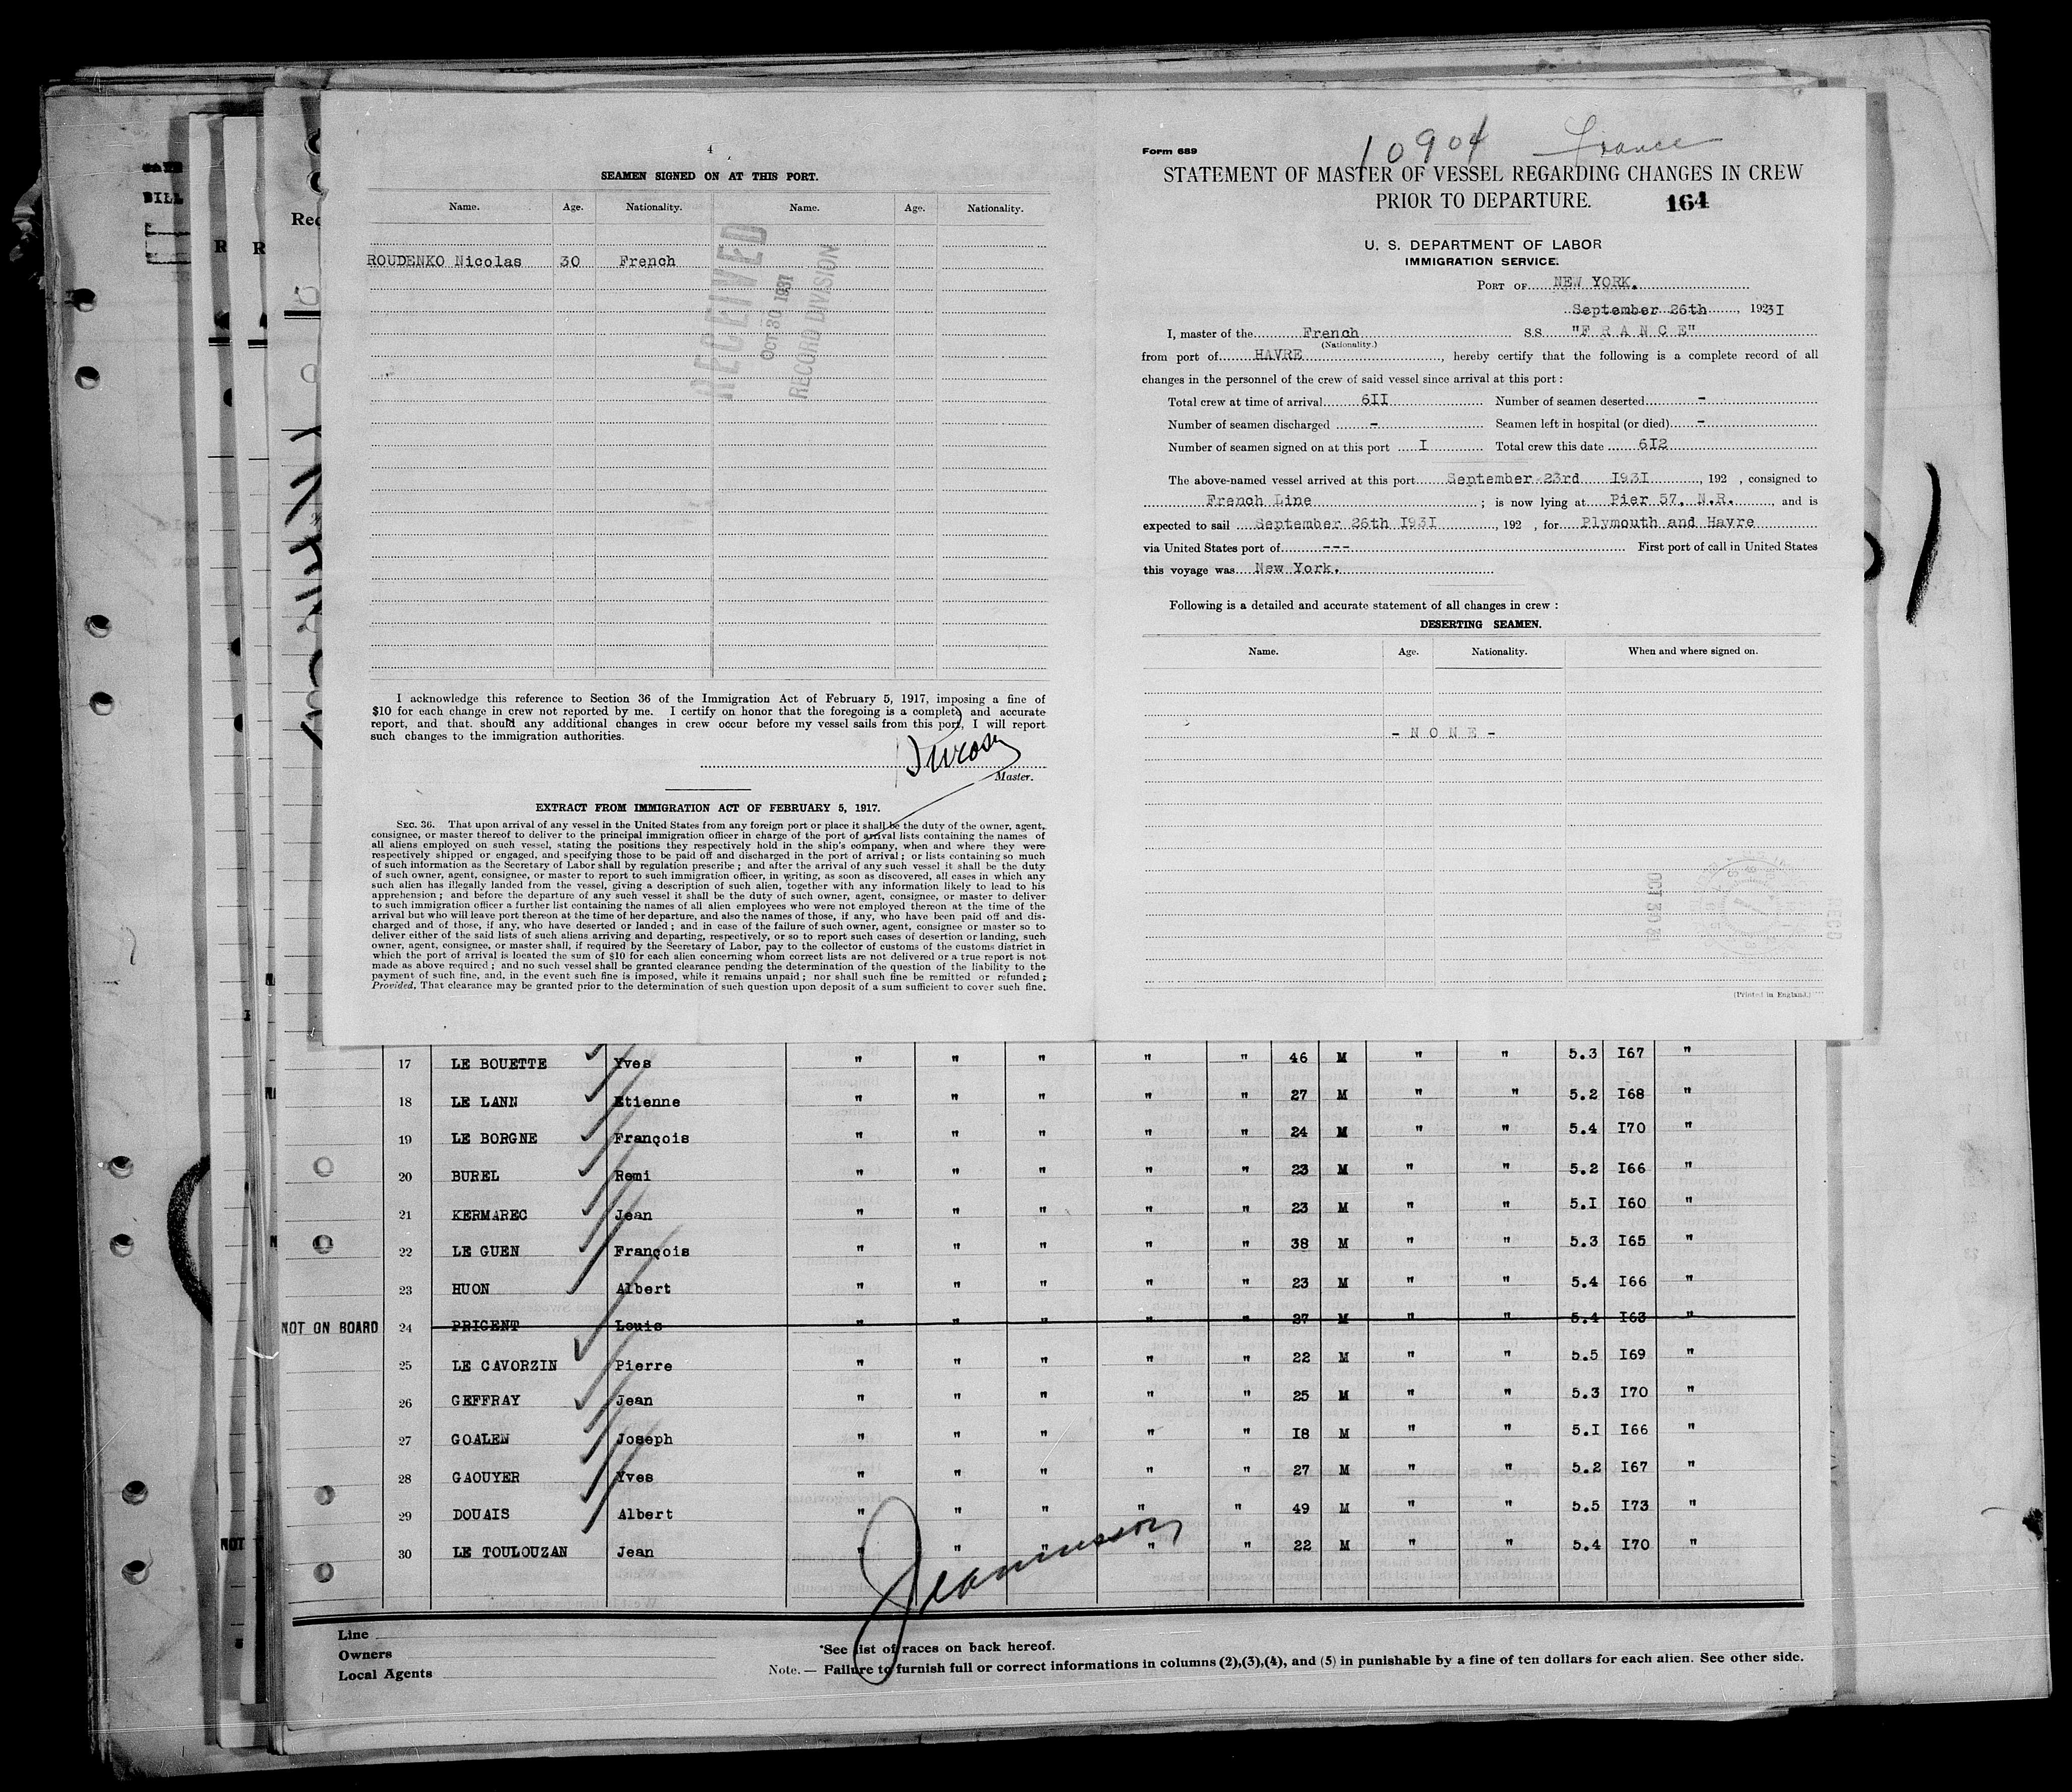 4
SEAMEN SIGNED ON AT THIS PORT.
Name. Age. Nationality. Name. Age. Nationality.
ROUDENKO Nicolas 30 French
RECEIVED
OCT 30 1931
RECORD DIVISION
I acknowledge this reference to Section 36 of the Immigration Act of February 5, 1917, imposing a fine of
$10 for each change in crew not reported by me. I certify on honor that the foregoing is a complete and accurate
report, and that. should any additional changes in crew occur before my vessel sails from this port, I will report
such changes to the immigration authorities.
Master.
EXTRACT FROM IMMIGRATION ACT OF FEBRUARY 5, 1917.
SEC. 36. That upon arrival of any vessel in the United States from any foreign port or place it shall be the duty of the owner, agent,
consignee, or master thereof to deliver to the principal immigration officer in charge of the port of arrival lists containing the names of
all aliens employed on such vessel, stating the positions they respectively hold in the ship's company, when and where they were
respectively shipped or engaged, and specifying those to be paid off and discharged in the port of arrival; or lists containing so much
of such information as the Secretary of Labor shall by regulation prescribe; and after the arrival of any such vessel it shall be the duty
of such owner, agent, consignee, or master to report to such immigration officer, in writing, as soon as discovered, all cases in which any
such alien has illegally landed from the vessel, giving a description of such alien, together with any information likely to lead to his
apprehension; and before the departure of any such vessel it shall be the duty of such owner, agent, consignee, or master to deliver
to such immigration officer a further list containing the names of all alien employees who were not employed thereon at the time of the
arrival but who will leave port thereon at the time of her departure, and also the names of those, if any, who have been paid off and dis-
charged and of those, if any, who have deserted or landed; and in case of the failure of such owner, agent, consignee or master so to
deliver either of the said lists of such aliens arriving and departing, respectively, or so to report such cases of desertion or landing, such
owner, agent, consignee, or master shall, if required by the Secretary of Labor, pay to the collector of customs of the customs district in
which the port of arrival is located the sum of $10 for each alien concerning whom correct lists are not delivered or a true report is not
made as above required; and no such vessel shall be granted clearance pending the determination of the question of the liability to the
payment of such fine, and, in the event such fine is imposed, while it remains unpaid; nor shall such fine be remitted or refunded:
Provided, That clearance may be granted prior to the determination of such question upon deposit of a sum sufficient to cover such fine.
10904 France
Form 689
STATEMENT OF MASTER OF VESSEL REGARDING CHANGES IN CREW
PRIOR TO DEPARTURE. 164
U. S. DEPARTMENT OF LABOR
IMMIGRATION SERVICE.
PORT OF NEW YORK.
September 26th, 19231
I, master of the French S.S. "F R A N C E"
(Nationality.)
from port of HAVRE, hereby certify that the following is a complete record of all
changes in the personnel of the crew of said vessel since arrival at this port:
Total crew at time of arrival 6II Number of seamen deserted -
Number of seamen discharged - Seamen left in hospital (or died) -
Number of seamen signed on at this port I Total crew this date 6I2
The above-named vessel arrived at this port September 23rd I93I, 192 , consigned to
French Line; is now lying at Pier 57, N.R., and is
expected to sail September 26th I93I, 192 , for Plymouth and Havre
via United States port of --- First port of call in United States
this voyage was New York.
Following is a detailed and accurate statement of all changes in crew:
DESERTING SEAMEN.
Name. Age. Nationality. When and where signed on.
- N O N E -
OCT 30
(Printed in England.)
17 LE BOUETTE Yves " " " " " 46 M " " 5.3 I67 "
18 LE LANN Etienne " " " " " 27 M " " 5.2 I68 "
19 LE BORGNE François " " " " " 24 M " " 5.4 I70 "
20 BUREL Remi " " " " " 23 M " " 5.2 I66 "
21 KERMAREC Jean " " " " " 23 M " " 5.I I60 "
22 LE GUEN François " " " " " 38 M " " 5.3 I65 "
23 HUON Albert " " " " " 23 M " " 5.4 I66 "
NOT ON BOARD 24 PRIGENT Louis " " " " " 27 M " " 5.4 I63 "
25 LE CAVORZIN Pierre " " " " " 22 M " " 5.5 I69 "
26 GEFFRAY Jean " " " " " 25 M " " 5.3 I70 "
27 GOALEN Joseph " " " " " I8 M " " 5.I I66 "
28 GAOUYER Yves " " " " " 27 M " " 5.2 I67 "
29 DOUAIS Albert " " " " " 49 M " " 5.5 I73 "
30 LE TOULOUZAN Jean " " " " " 22 M " " 5.4 I70 "
Line
Owners
Local Agents
*See list of races on back hereof.
Note. — Failure to furnish full or correct informations in columns (2),(3),(4), and (5) in punishable by a fine of ten dollars for each alien. See other side.